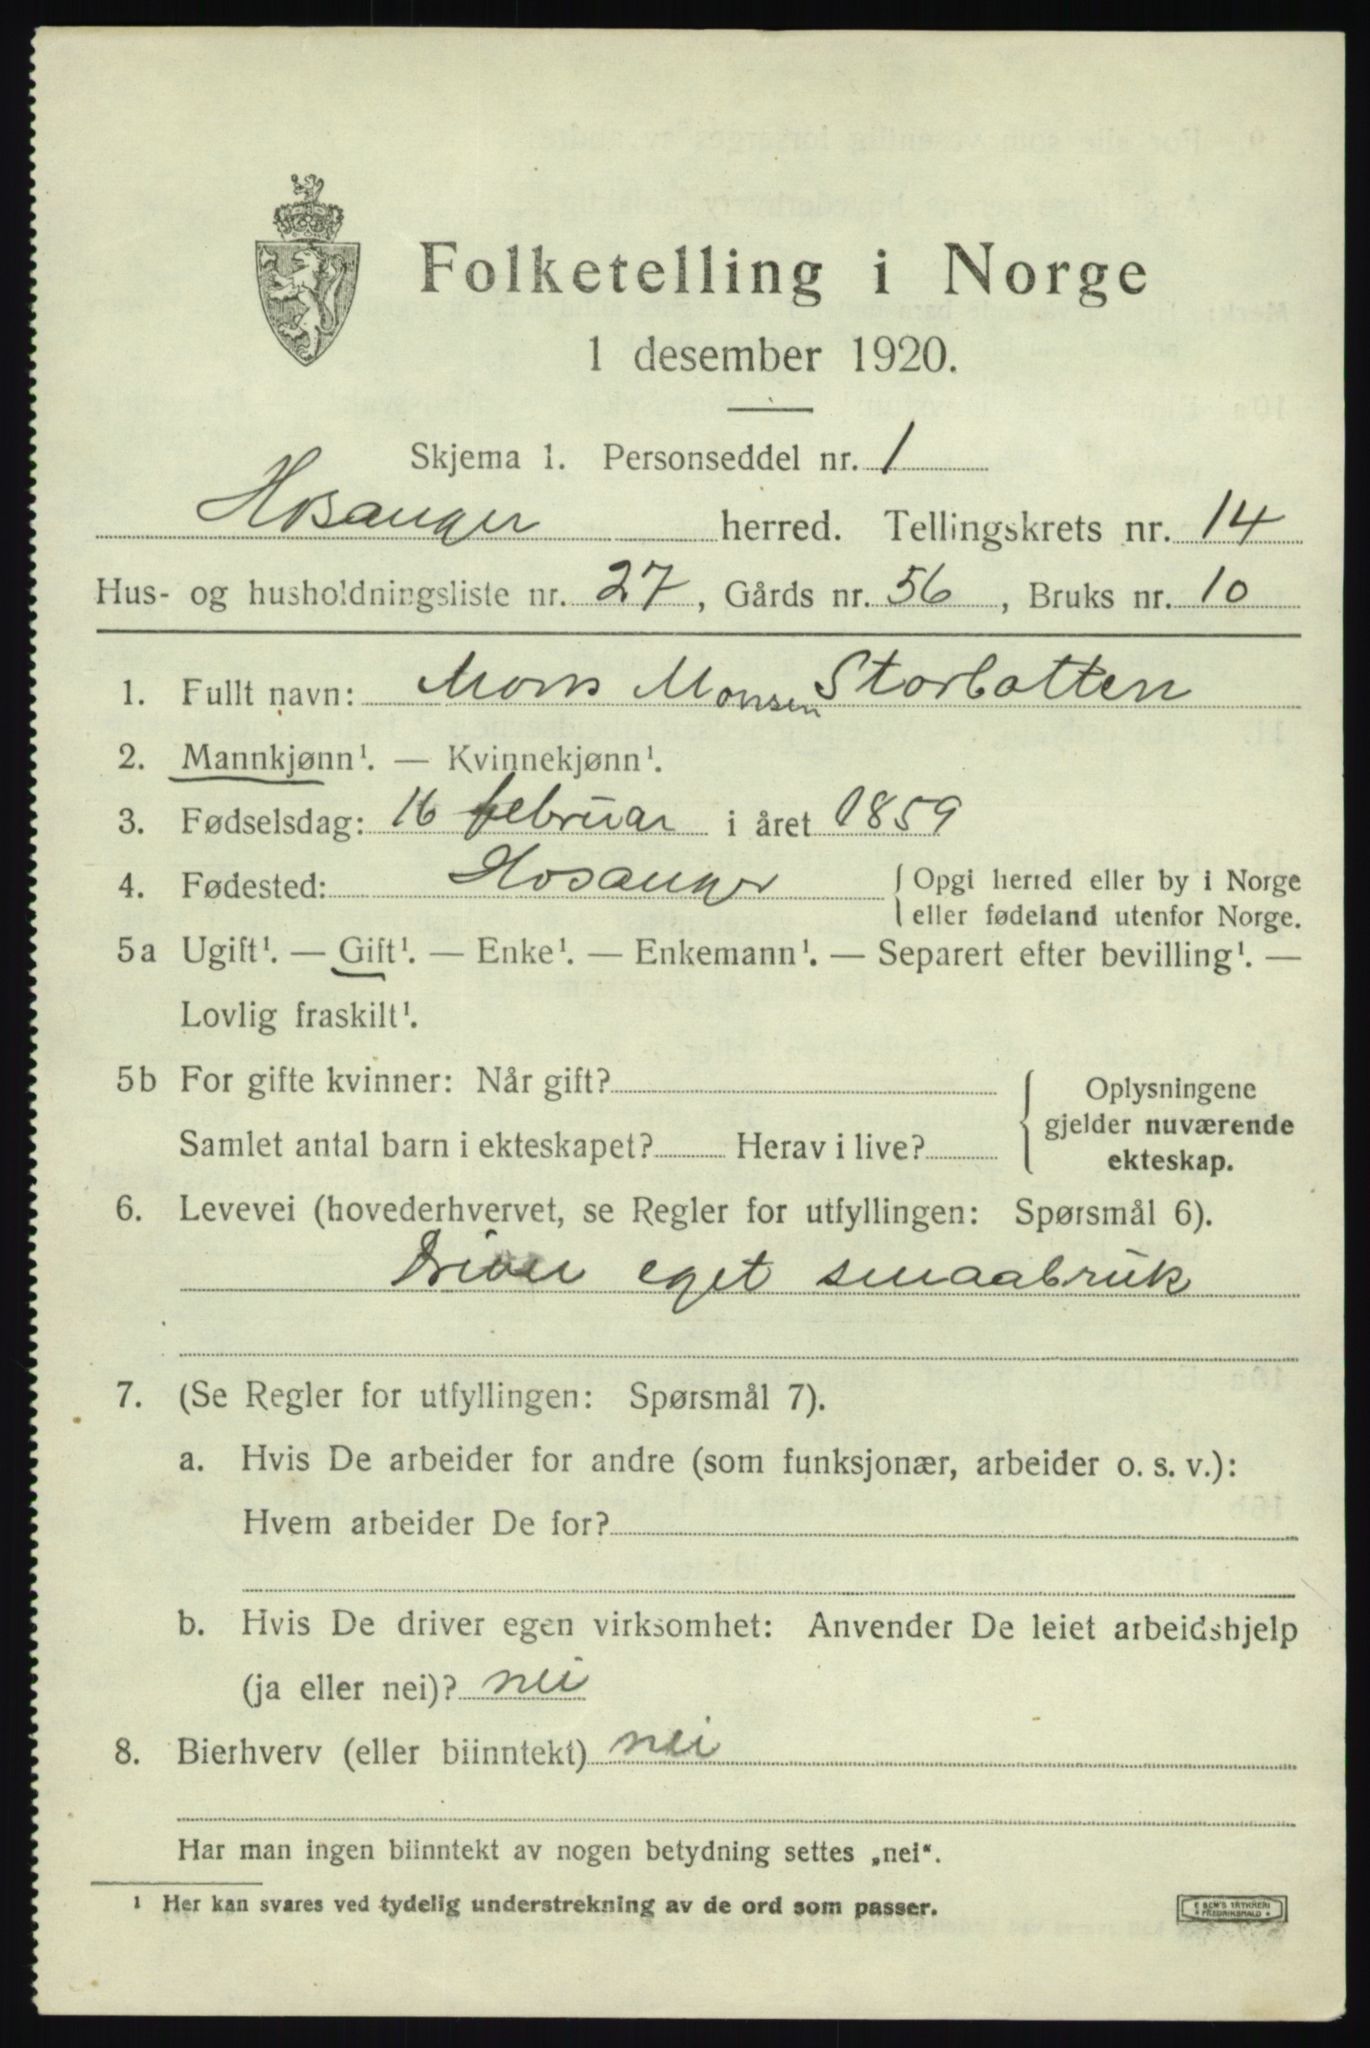 Folketelling i Norge
1 desember 1920.
Skjema 1. Personseddel nr. 1
Hosanger herred. Tellingskrets nr. 14
Hus- og husholdningsliste nr. 27, Gårds nr. 56, Bruks nr. 10
1. Fullt navn: Mons Monsen Storbotten
2. Mannkjønn¹. — Kvinnekjønn¹.
3. Fødselsdag: 16 februar i året 1859
4. Fødested: Hosanger { Opgi herred eller by i Norge
eller fødeland utenfor Norge.
5a Ugift¹. — Gift¹. — Enke¹. — Enkemann¹. — Separert efter bevilling¹. —
Lovlig fraskilt¹.
5b For gifte kvinner: Når gift?
Samlet antal barn i ekteskapet? Herav i live?
{ Oplysningene
gjelder nuværende
ekteskap.
6. Levevei (hovederhvervet, se Regler for utfyllingen: Spørsmål 6).
Driver eget smaabruk
7. (Se Regler for utfyllingen: Spørsmål 7).
a. Hvis De arbeider for andre (som funksjonær, arbeider o. s. v.):
Hvem arbeider De for?
b. Hvis De driver egen virksomhet: Anvender De leiet arbeidshjelp
(ja eller nei)? nei
8. Bierhverv (eller biinntekt) nei
Har man ingen biinntekt av nogen betydning settes „nei“.
¹ Her kan svares ved tydelig understrekning av de ord som passer.